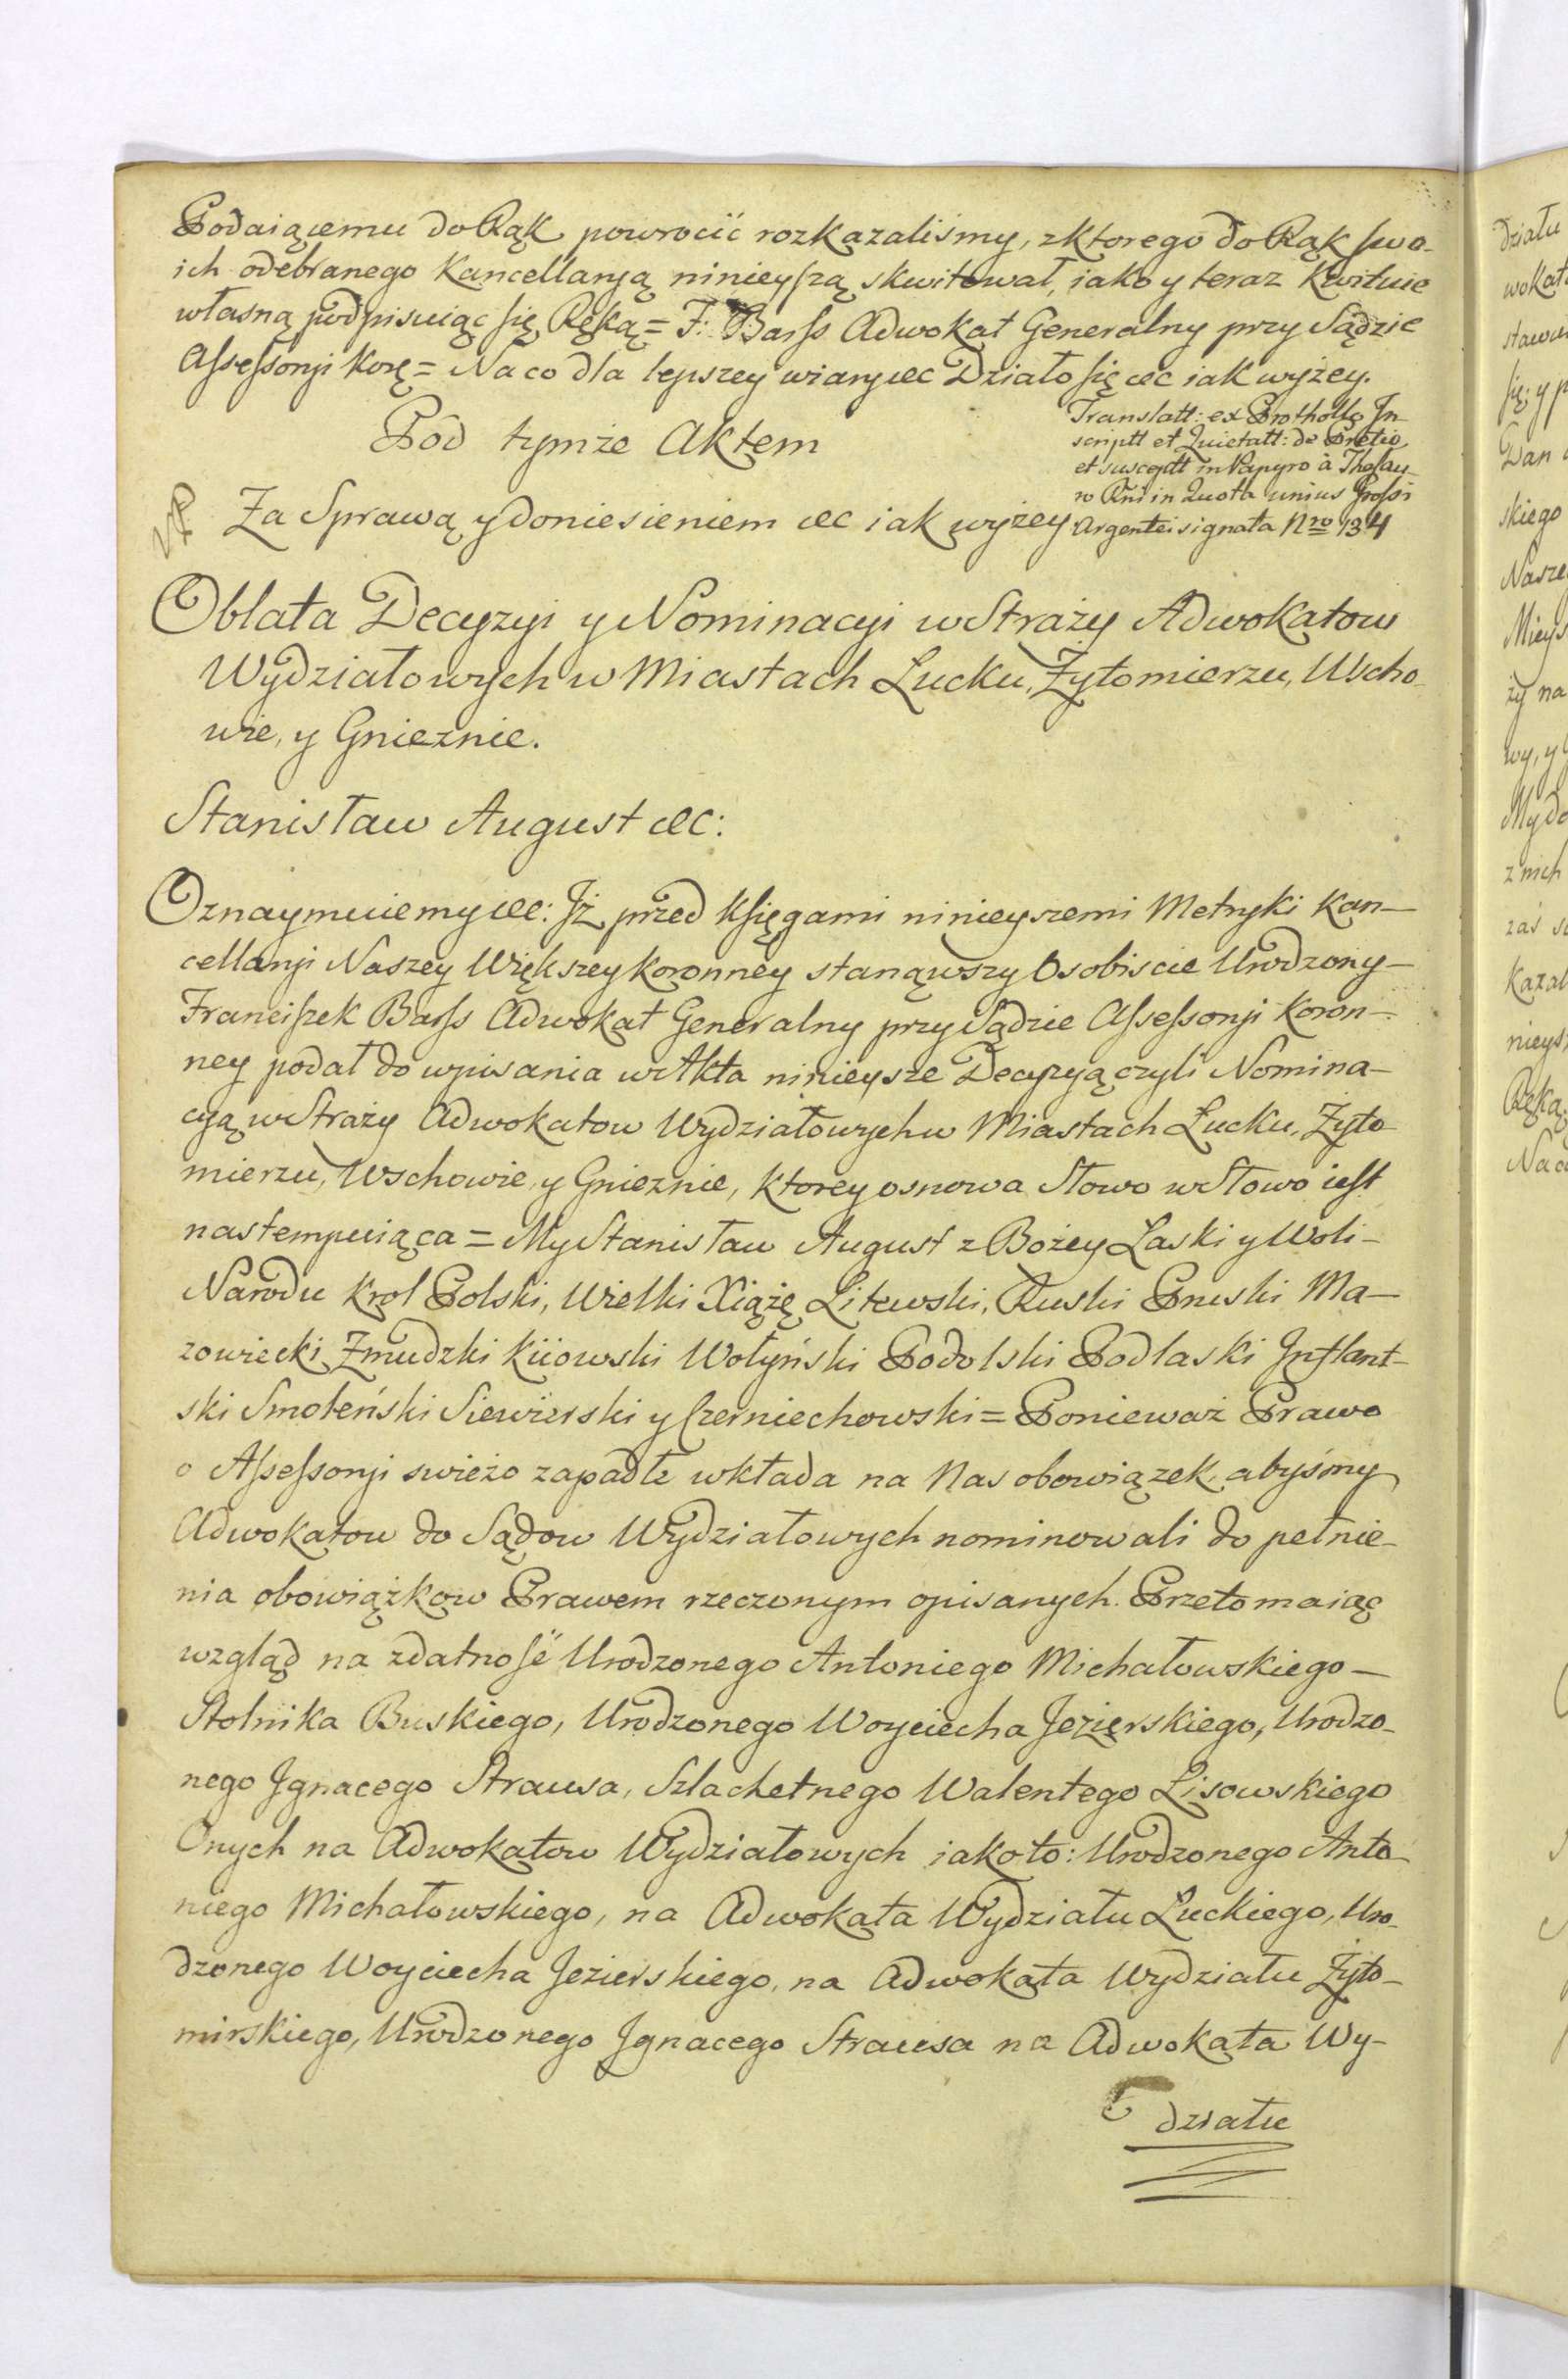 Podaiącemu do Rąk powrocić rozkazaliśmy, z ktorego do Rąk swo-
ich odebranego Kancellaryą ninieyszą skwitował, iako y teraz kwituie
własną podpisuiąc się Ręką = F: Barss Adwokat Generalny przy Sądzie
Assessoryi Korę = Na co dla lepszey wiary &c Działo się &c iak wyżey.
Pod tymże Aktem
Translatt: ex Prothollo In-
scriptt et Quietatt: de Pretio
et susceptt in Papyro à Thesau-
ro Rñi in Quota unius Grossi
Argentei signata Nro 134
Za Sprawą y doniesieniem &c iak wyżey
Oblata Decyzyi y Nominacyi w Straży Adwokatow
Wydziałowych w Miastach Łucku, Żytomierzu, Wscho-
wie, y Gnieznie.
Stanisław August &c:
Oznaymuiemy &c: Jż przed Księgami ninieyszemi Metryki Kan-
cellaryi Naszey Większey Koronney stanąwszy Osobiscie Urodzony
Franciszek Barss Adwokat Generalny przy Sądzie Assessoryi Koron-
ney podał do wpisania w Akta ninieysze Decyzyą czyli Nomina-
cyą w Straży Adwokatow Wydziałowych w Miastach Łucku, Żyto-
mierzu, Wschowie, y Gnieznie, ktorey osnowa Słowo w Słowo iest
nastempuiąca = My Stanisław August z Bożey Łaski y Woli
Narodu Krol Polski, Wielki Xiążę Litewski, Ruski Pruski Ma-
zowiecki Zmudzki Kiiowski Wołyński Podolski Podlaski Jnflant-
ski Smoleński Siewierski y Czerniechowski = Ponieważ Prawo
o Assessoryi swieżo zapadłe wkłada na Nas obowiązek, abyśmy
Adwokatow do Sądow Wydziałowych nominowali do pełnie-
nia obowiążkow Prawem rzeczonym opisanych. Przeto maiąc
wzgląd na zdatność Urodzonego Antoniego Michałowskiego
Stolnika Buskiego, Urodzonego Woyciecha Jezierskiego, Urodzo-
nego Jgnacego Strausa, Szlachetnego Walentego Lisowskiego
Onych na Adwokatow Wydziałowych iako to: Urodzonego Anto-
niego Michałowskiego, na Adwokata Wydziału Łuckiego, Uro-
dzonego Woyciecha Jezierskiego, na Adwokata Wydziału Żyto-
mirskiego, Urodzonego Jgnacego Strausa na Adwokata Wy-
działu
działu
skiego
Nasze
z nich
Ręką